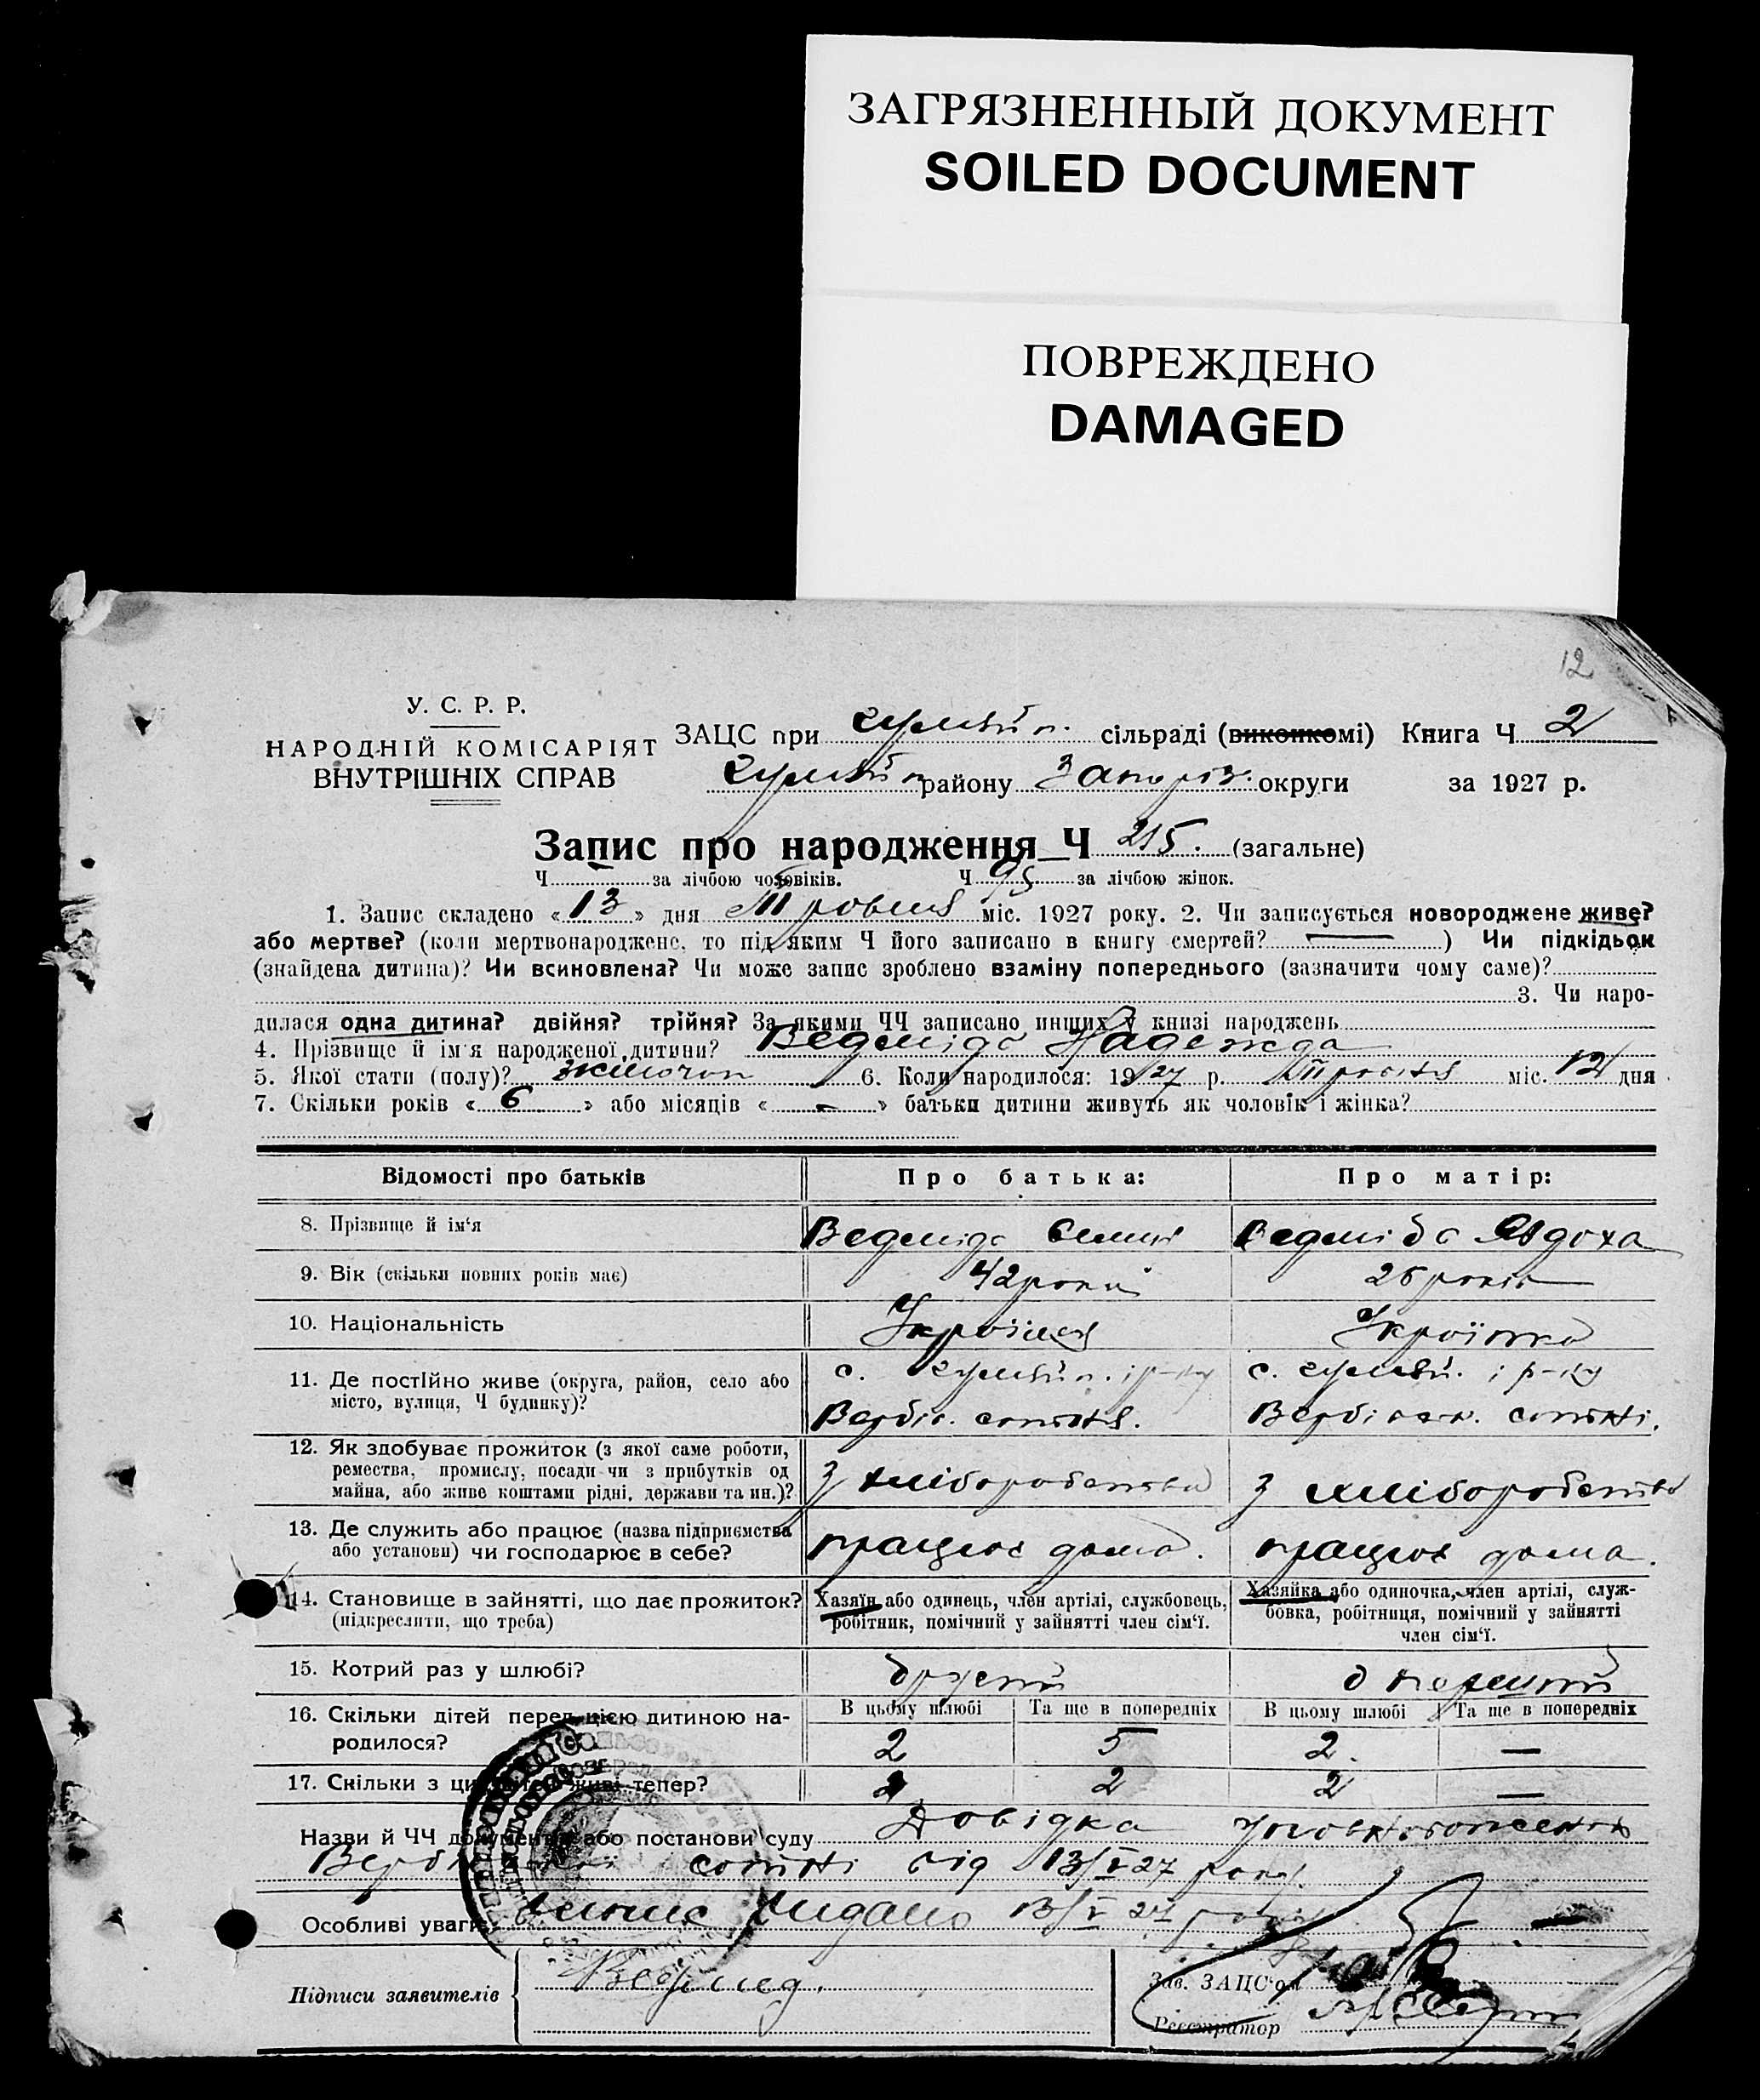 ЗАГРЯЗНЕННЫЙ ДОКУМЕНТ
SOILED DOCUMENT
ПОВРЕЖДЕНО
DAMAGED
12
У. С. Р. Р.
НАРОДНІЙ КОМІСАРІЯТ
ВНУТРІШНІХ СПРАВ
ЗАЦС при Гуляйп. сільраді (виконкомі) Книга Ч 2
Гуляйп району Запоріз. округи за 1927 р.
Запис про народження Ч 215. (загальне)
Ч — за лічбою чоловіків. Ч 95 за лічбою жінок.
1. Запис складено «13» дня Травня міс. 1927 року. 2. Чи записується новороджене живе?
або мертве? (коли мертвонароджене, то під яким Ч його записано в книгу смертей? —) Чи підкідьок
(знайдена дитина)? Чи всиновлена? Чи може запис зроблено взаміну попереднього (зазначити чому саме)?
3. Чи наро-
дилася одна дитина? двійня? трійня? За якими ЧЧ записано инших у книзі народжень
4. Прізвище й ім'я народженої дитини? Ведміда Надежда
5. Якої стати (полу)? жіночоп 6. Коли народилося: 1927 р. Травня міс. 12 дня
7. Скільки років «6» або місяців «-» батьки дитини живуть як чоловік і жінка?
Відомості про батьків Про батька: Про матір:
8. Прізвище й ім'я Ведміда Семен Ведміда Явдоха
9. Вік (скільки повних років має) 42 роки 26 років
10. Національність Українец Українка
11. Де постійно живе (округа, район, село або с. Гуляйп. і р-ну с. Гуляй. і р-ну
місто, вулиця, Ч будинку)? Вербів. сотня. сотні.
12. Як здобуває прожиток (з якої саме роботи,
ремества, промислу, посади чи з прибутків од з хліборобства з хліборобства
майна, або живе коштами рідні, держави та ин.)?
13. Де служить або працює (назва підприємства
або установи) чи господарює в себе? працює дома. працює дома.
14. Становище в зайнятті, що дає прожиток? Хазяїн або одинець, член артілі, службовець, Хазяйка або одиночка, член артілі, служ-
(підкреслити, що треба) робітник, помічний у зайнятті член сім'ї. бовка, робітниця, помічний у зайнятті
член сім'ї.
15. Котрий раз у шлюбі? другий перший
16. Скільки дітей перед цією дитиною на- В цьому шлюбі Та ще в попередніх В цьому шлюбі Та ще в попередніх
родилося? 2 5 2. —
17. Скільки з цих дітей живі тепер? 2 2 2 —
Назви й ЧЧ документів або постанови суду Довідка Уповноваженого
сотні від 13/V 27 року.
Особливі уваги: Видано 13/V 27 року —
Підписи заявителів Ведмед. Зав. ЗАЦС'ом
Реєстратор